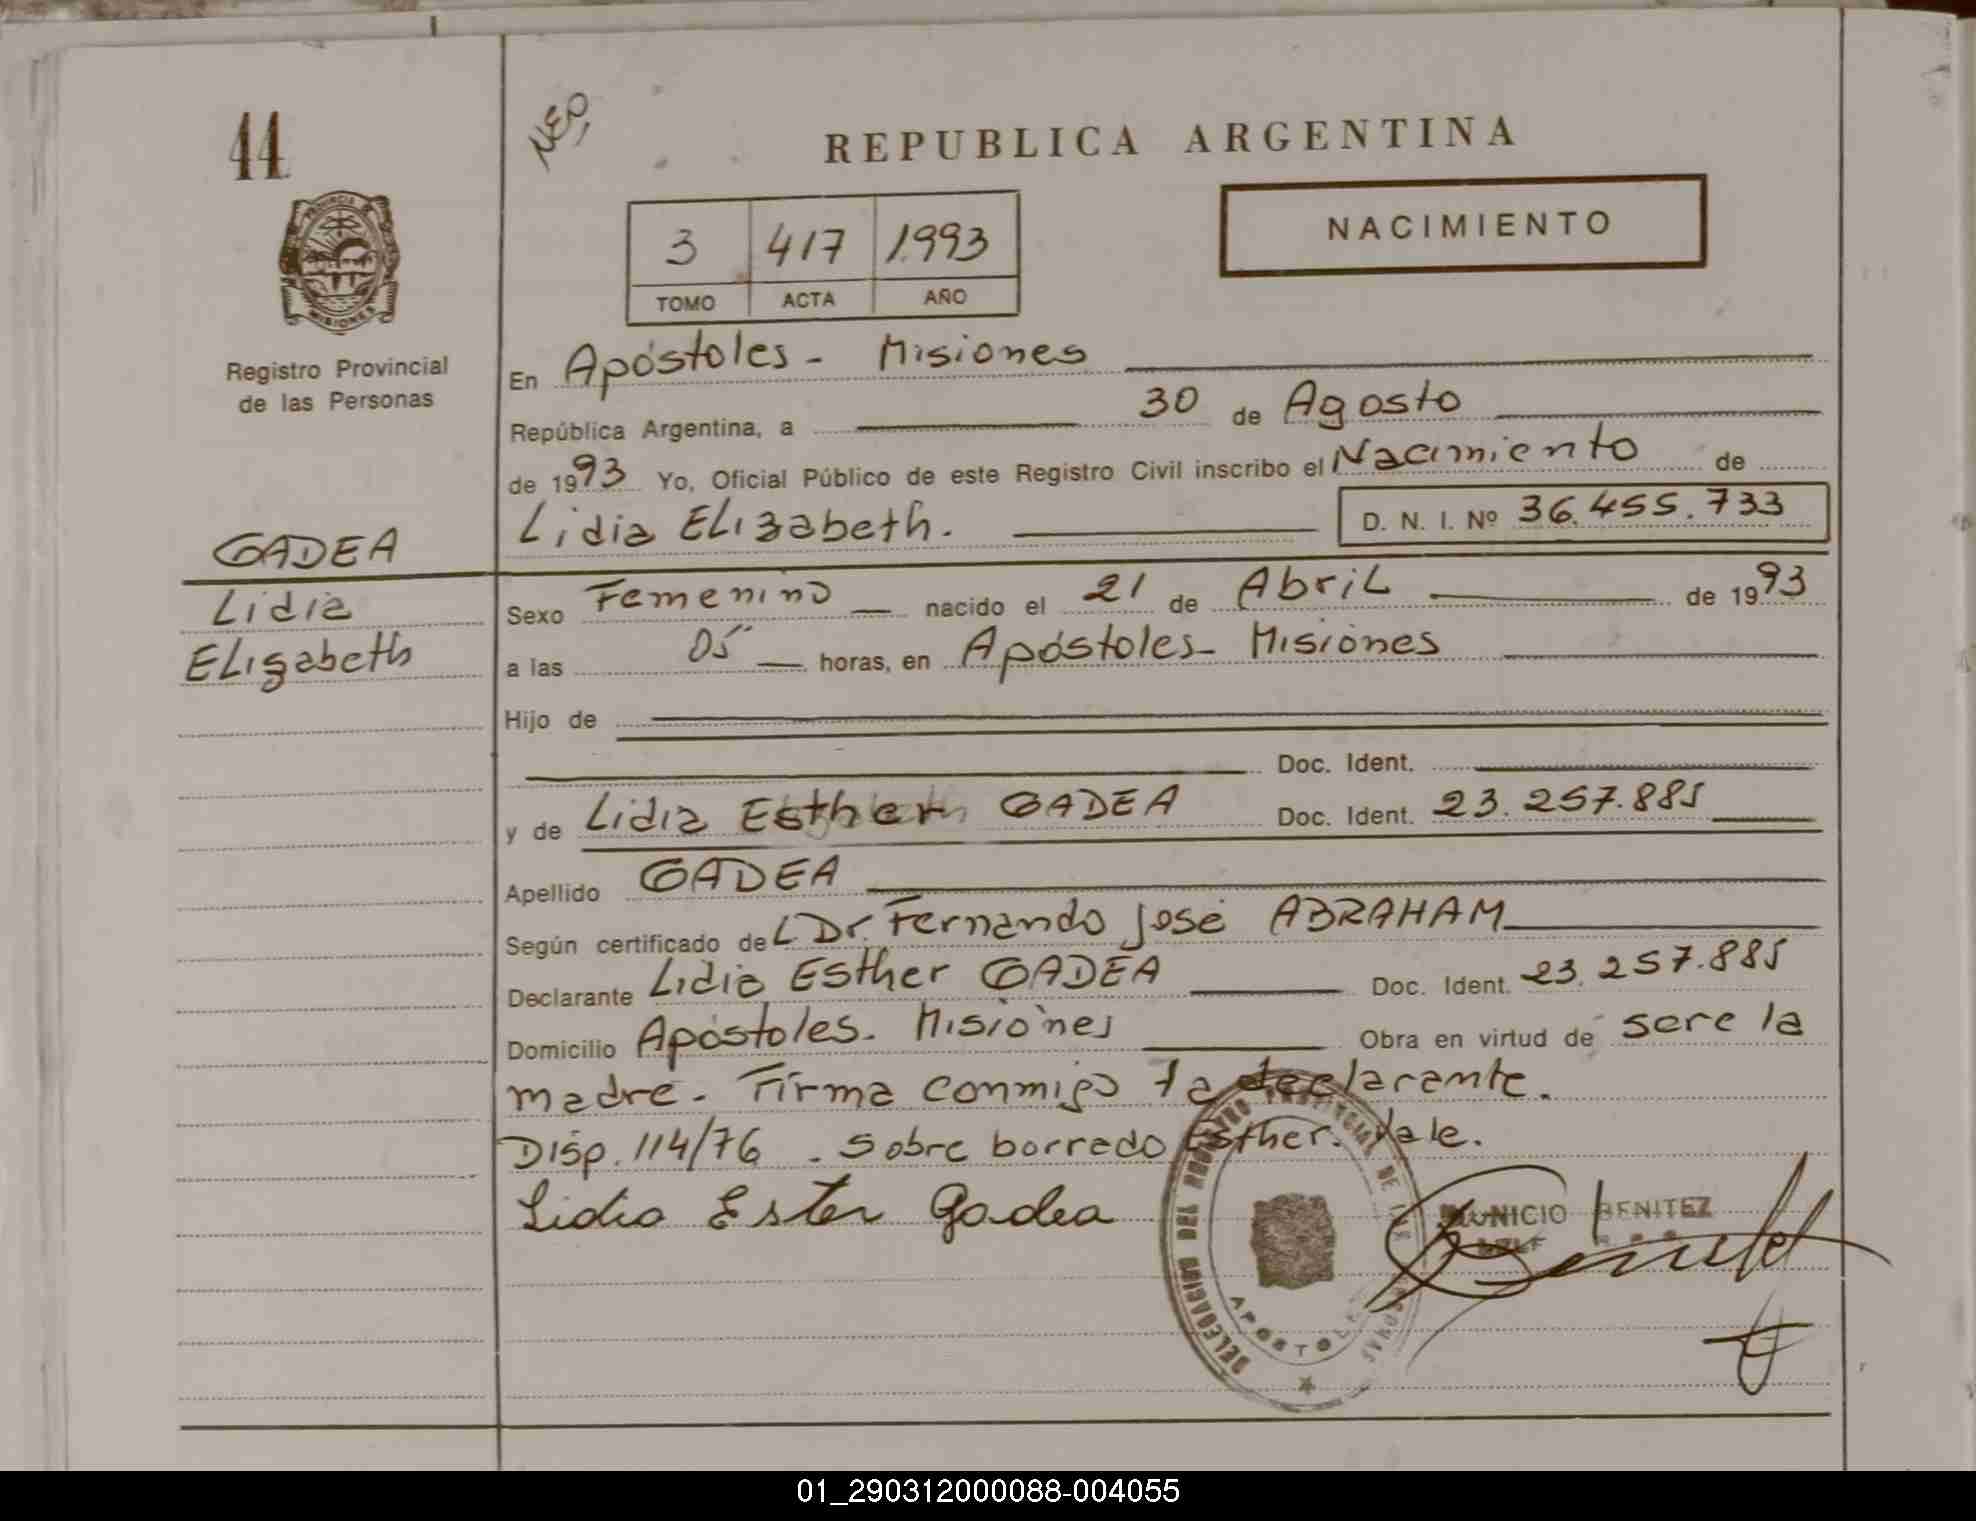 44
NEO
REPUBLICA ARGENTINA
NACIMIENTO
3 417 1993
TOMO ACTA AÑO
PROVINCIA DE MISIONES
Registro Provincial
de las Personas
En Apóstoles - Misiones
República Argentina, a 30 de Agosto
de 1993 Yo, Oficial Público de este Registro Civil inscribo el Nacimiento de
Lidia Elizabeth. D. N. I. Nº 36.455.733
GADEA
Lidia
Elizabeth
Sexo Femenino nacido el 21 de Abril de 1993
a las 05 horas, en Apóstoles - Misiones
Hijo de
Doc. Ident.
y de Lidia Esther GADEA Doc. Ident. 23.257.885
Apellido GADEA
Según certificado del Dr. Fernando José ABRAHAM
Declarante Lidia Esther GADEA Doc. Ident. 23.257.885
Domicilio Apóstoles. Misiones Obra en virtud de sere la
madre. Firma conmigo la declarante.
Disp. 114/76 . Sobre borrado Esther. Vale.
Lidia Ester Gadea
DELEGACION DEL REGISTRO PROVINCIAL DE LAS PERSONAS
APOSTOLES
BENITEZ
01_290312000088-004055